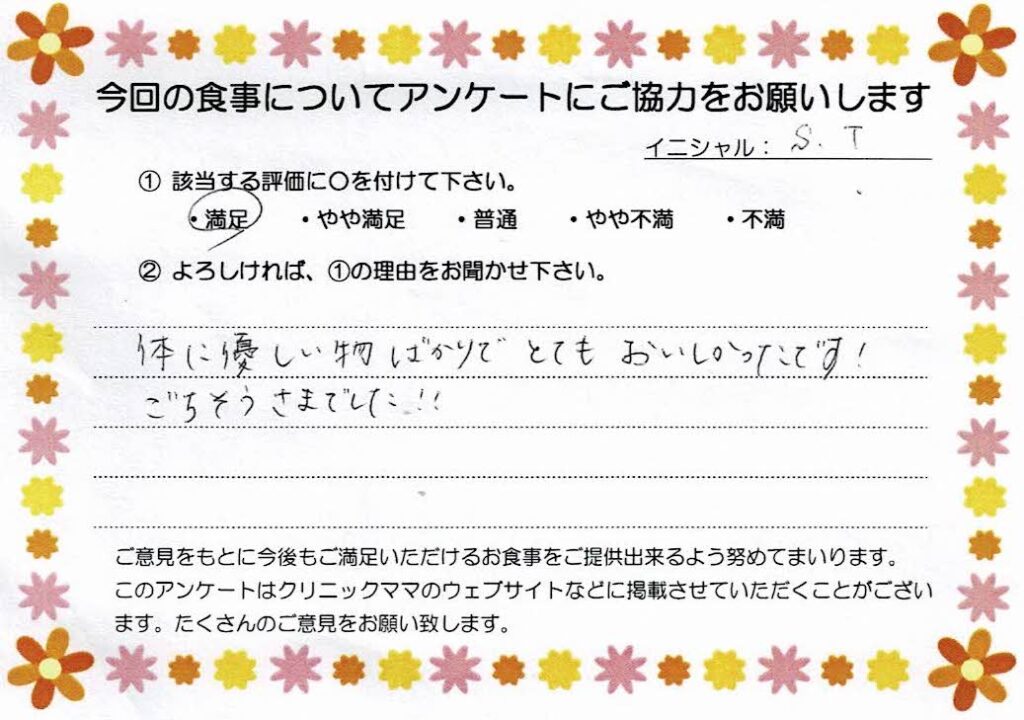 今回の食事についてアンケートにご協力をお願いします
イニシャル： S. T
① 該当する評価に〇を付けて下さい。
・満足 ・やや満足 ・普通 ・やや不満 ・不満
② よろしければ、①の理由をお聞かせ下さい。
体に優しい物ばかりでとてもおいしかったです！
ごちそうさまでした!!
ご意見をもとに今後もご満足いただけるお食事をご提供出来るよう努めてまいります。
このアンケートはクリニックママのウェブサイトなどに掲載させていただくことがござい
ます。たくさんのご意見をお願い致します。